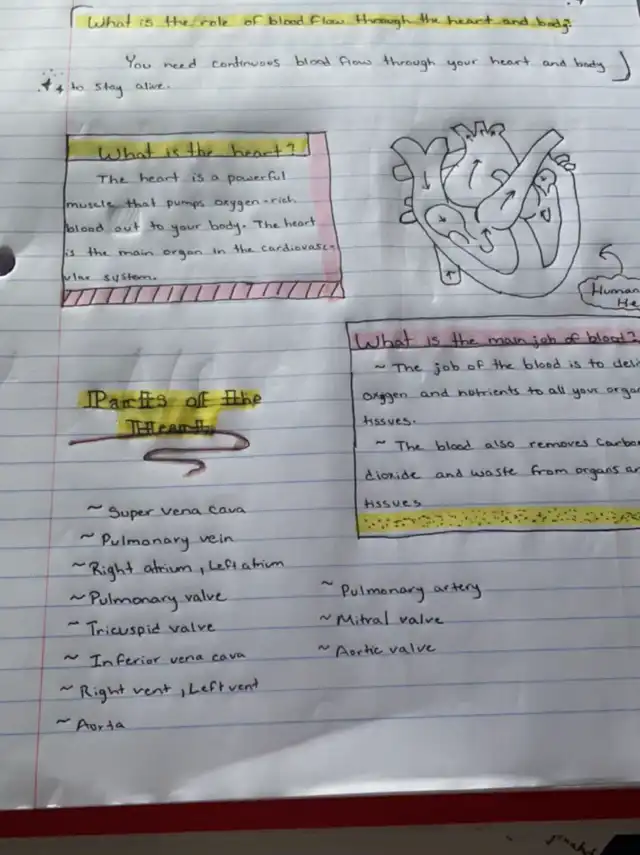 What is the role of blood flow through the heart and body?
You need continuous blood flow through your heart and body
to stay alive.
What is the heart?
The heart is a powerful
muscle that pumps oxygen-rich
blood out to your body. The heart
is the main organ in the cardiovasc-
ular system.
Human
He
What is the main job of blood?
~ The job of the blood is to deli
oxygen and nutrients to all your orga
tissues.
~ The blood also removes carbo
dioxide and waste from organs an
tissues
Parts of the
Heart.
~ Super vena cava
~ Pulmonary vein
~ Right atrium, Left atrium
~ Pulmonary valve
~ Tricuspid valve
~ Inferior vena cava
~ Right vent, Left vent
~ Aorta
~ Pulmonary artery
~ Mitral valve
~ Aortic valve